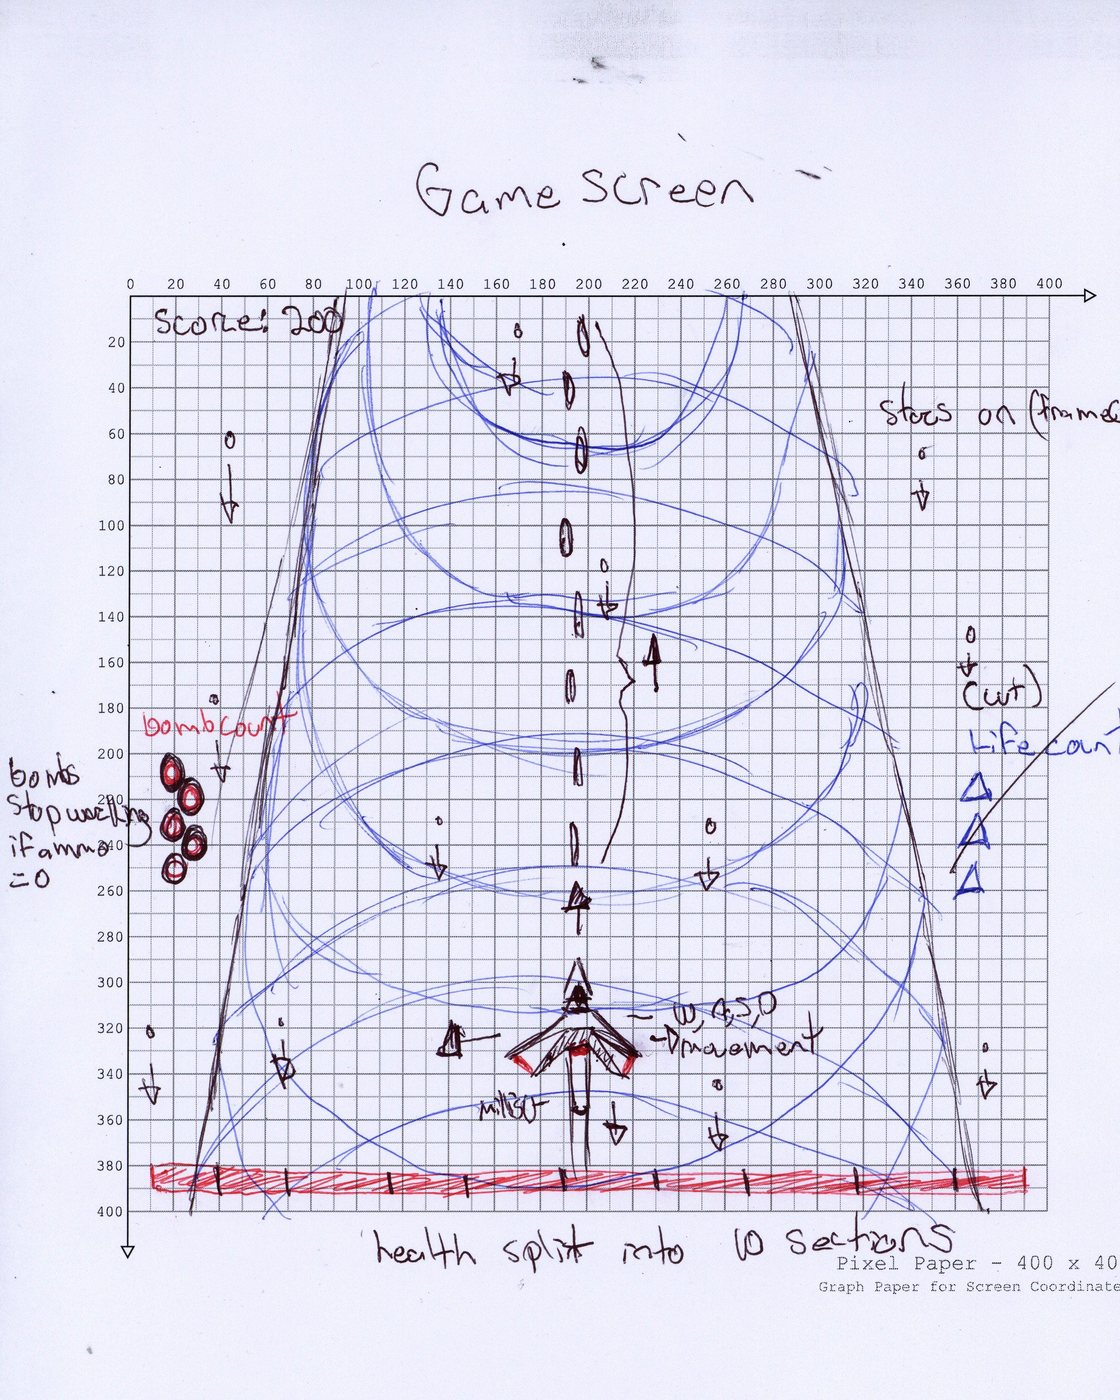 Game Screen
0 20 40 60 80 100 120 140 160 180 200 220 240 260 280 300 320 340 360 380 400
Score: 200
20
40
stars on (frame
60
80
100
120
140
160
(cut)
180
bomb count
Life count
200
bombs
stop working
220
if ammo
240
=0
260
280
300
W, A, S, D
320
movement
340
360
380
400
health split into 10 sections
Pixel Paper - 400 x 40
Graph Paper for Screen Coordinate